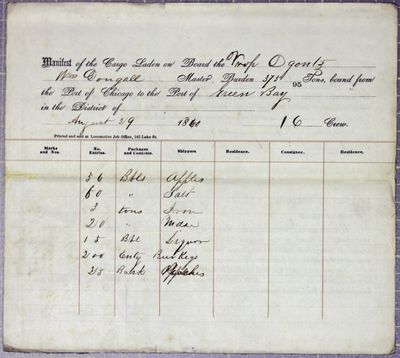 Manifest of the Cargo Laden on Board the Prop Ogontz
Wm Dougall Master, Burden 343 95 Tons, bound from
the Port of Chicago to the Port of Green Bay
in the District of
August 29 1860 16 Crew.
Printed and sold at Locomotive Job Office, 142 Lake St.
Marks and Nos. No. Entries. Packages and Contents. Shippers. Residence. Consignee. Residence.
56 Bbls Apples
60 " Salt
3 tons Iron
20 " Mdse
15 Bbl Liquor
200 Emty Beer Kegs
25 Peaches